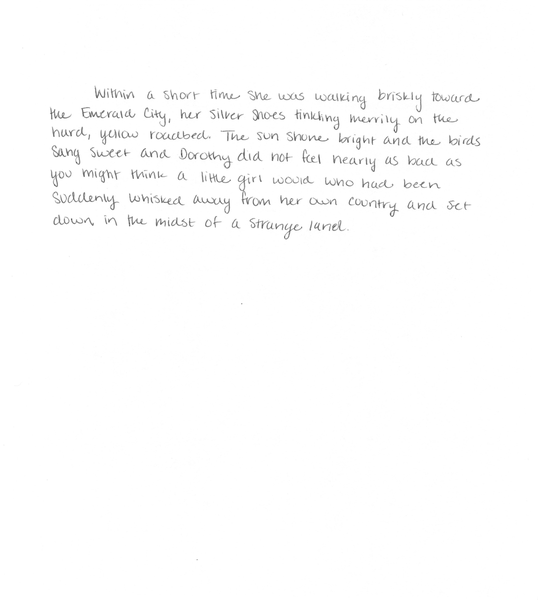 Within a short time she was walking briskly toward
the Emerald City, her Silver Shoes tinkling merrily on the
hard, yellow roadbed. The sun shone bright and the birds
Sang sweet and Dorothy did not feel nearly as bad as
you might think a little girl would who had been
Suddenly whisked away from her own country and set
down in the midst of a strange land.